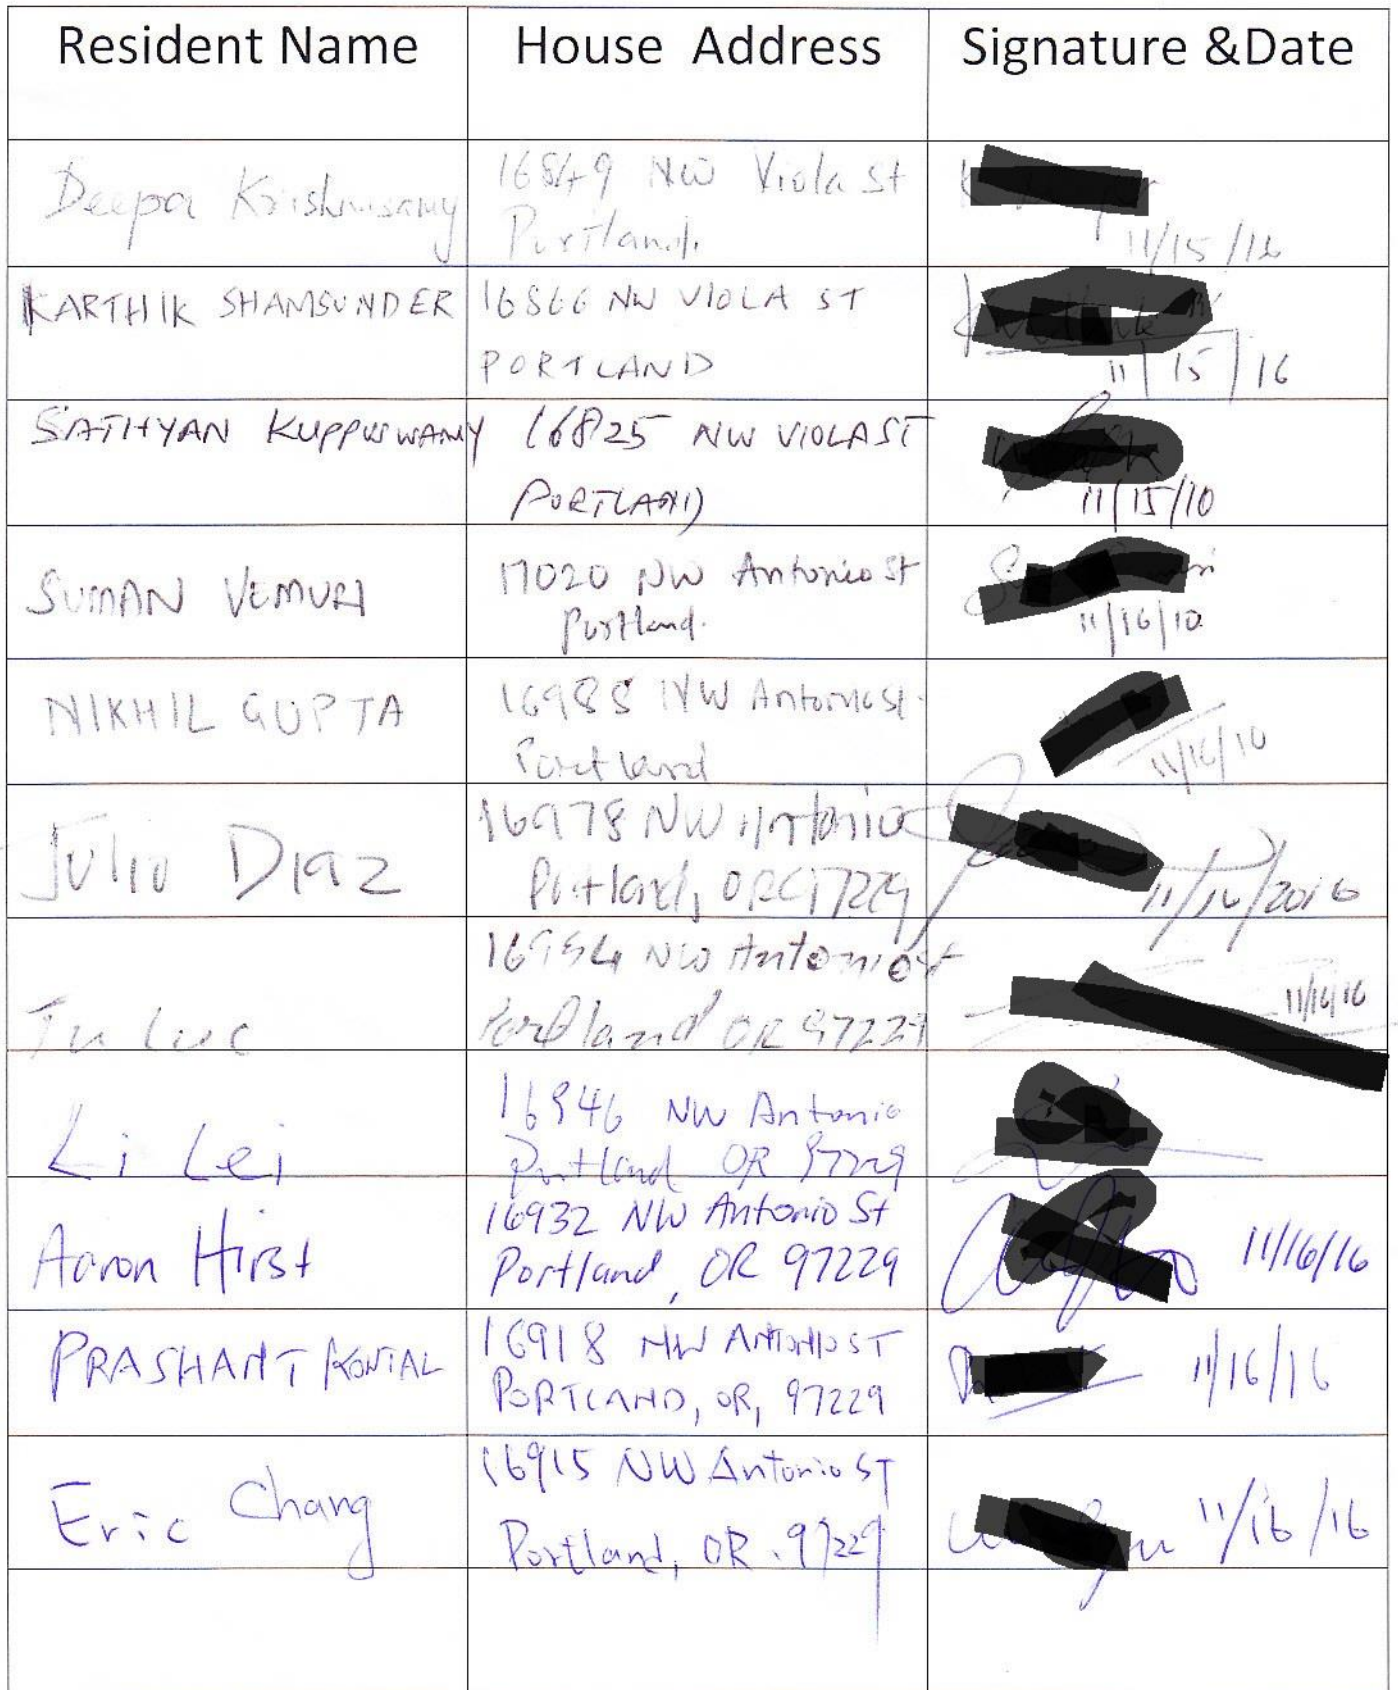 Resident Name House Address Signature &Date
Deepa Krishnasamy 16849 NW Viola st
Portland.
11/15/16
KARTHIK SHAMSUNDER 16866 NW VIOLA ST
PORTLAND
11/15/16
SATHYAN KUPPUSWAMY 16825 NW VIOLA ST
PORTLAND
11/15/10
SUMAN VEMURI 17020 NW Antonio st
Portland.
11/16/10
NIKHIL GUPTA 16988 NW Antonio st.
Portland
11/16/10
Julio Diaz 16978 NW Antonio
Portland, OR 97229
11/16/2016
16954 NW Antonio st
11/16/16
Tu Luc Portland OR 97229
16946 NW Antonio
Li Lei Portland OR 97229
16932 NW Antonio St
Aaron Hirst Portland, OR 97229 11/16/16
16918 NW Antonio ST
PRASHANT PORTLAND, OR, 97229 11/16/16
16915 NW Antonio ST
Eric Chang Portland, OR. 97229 11/16/16